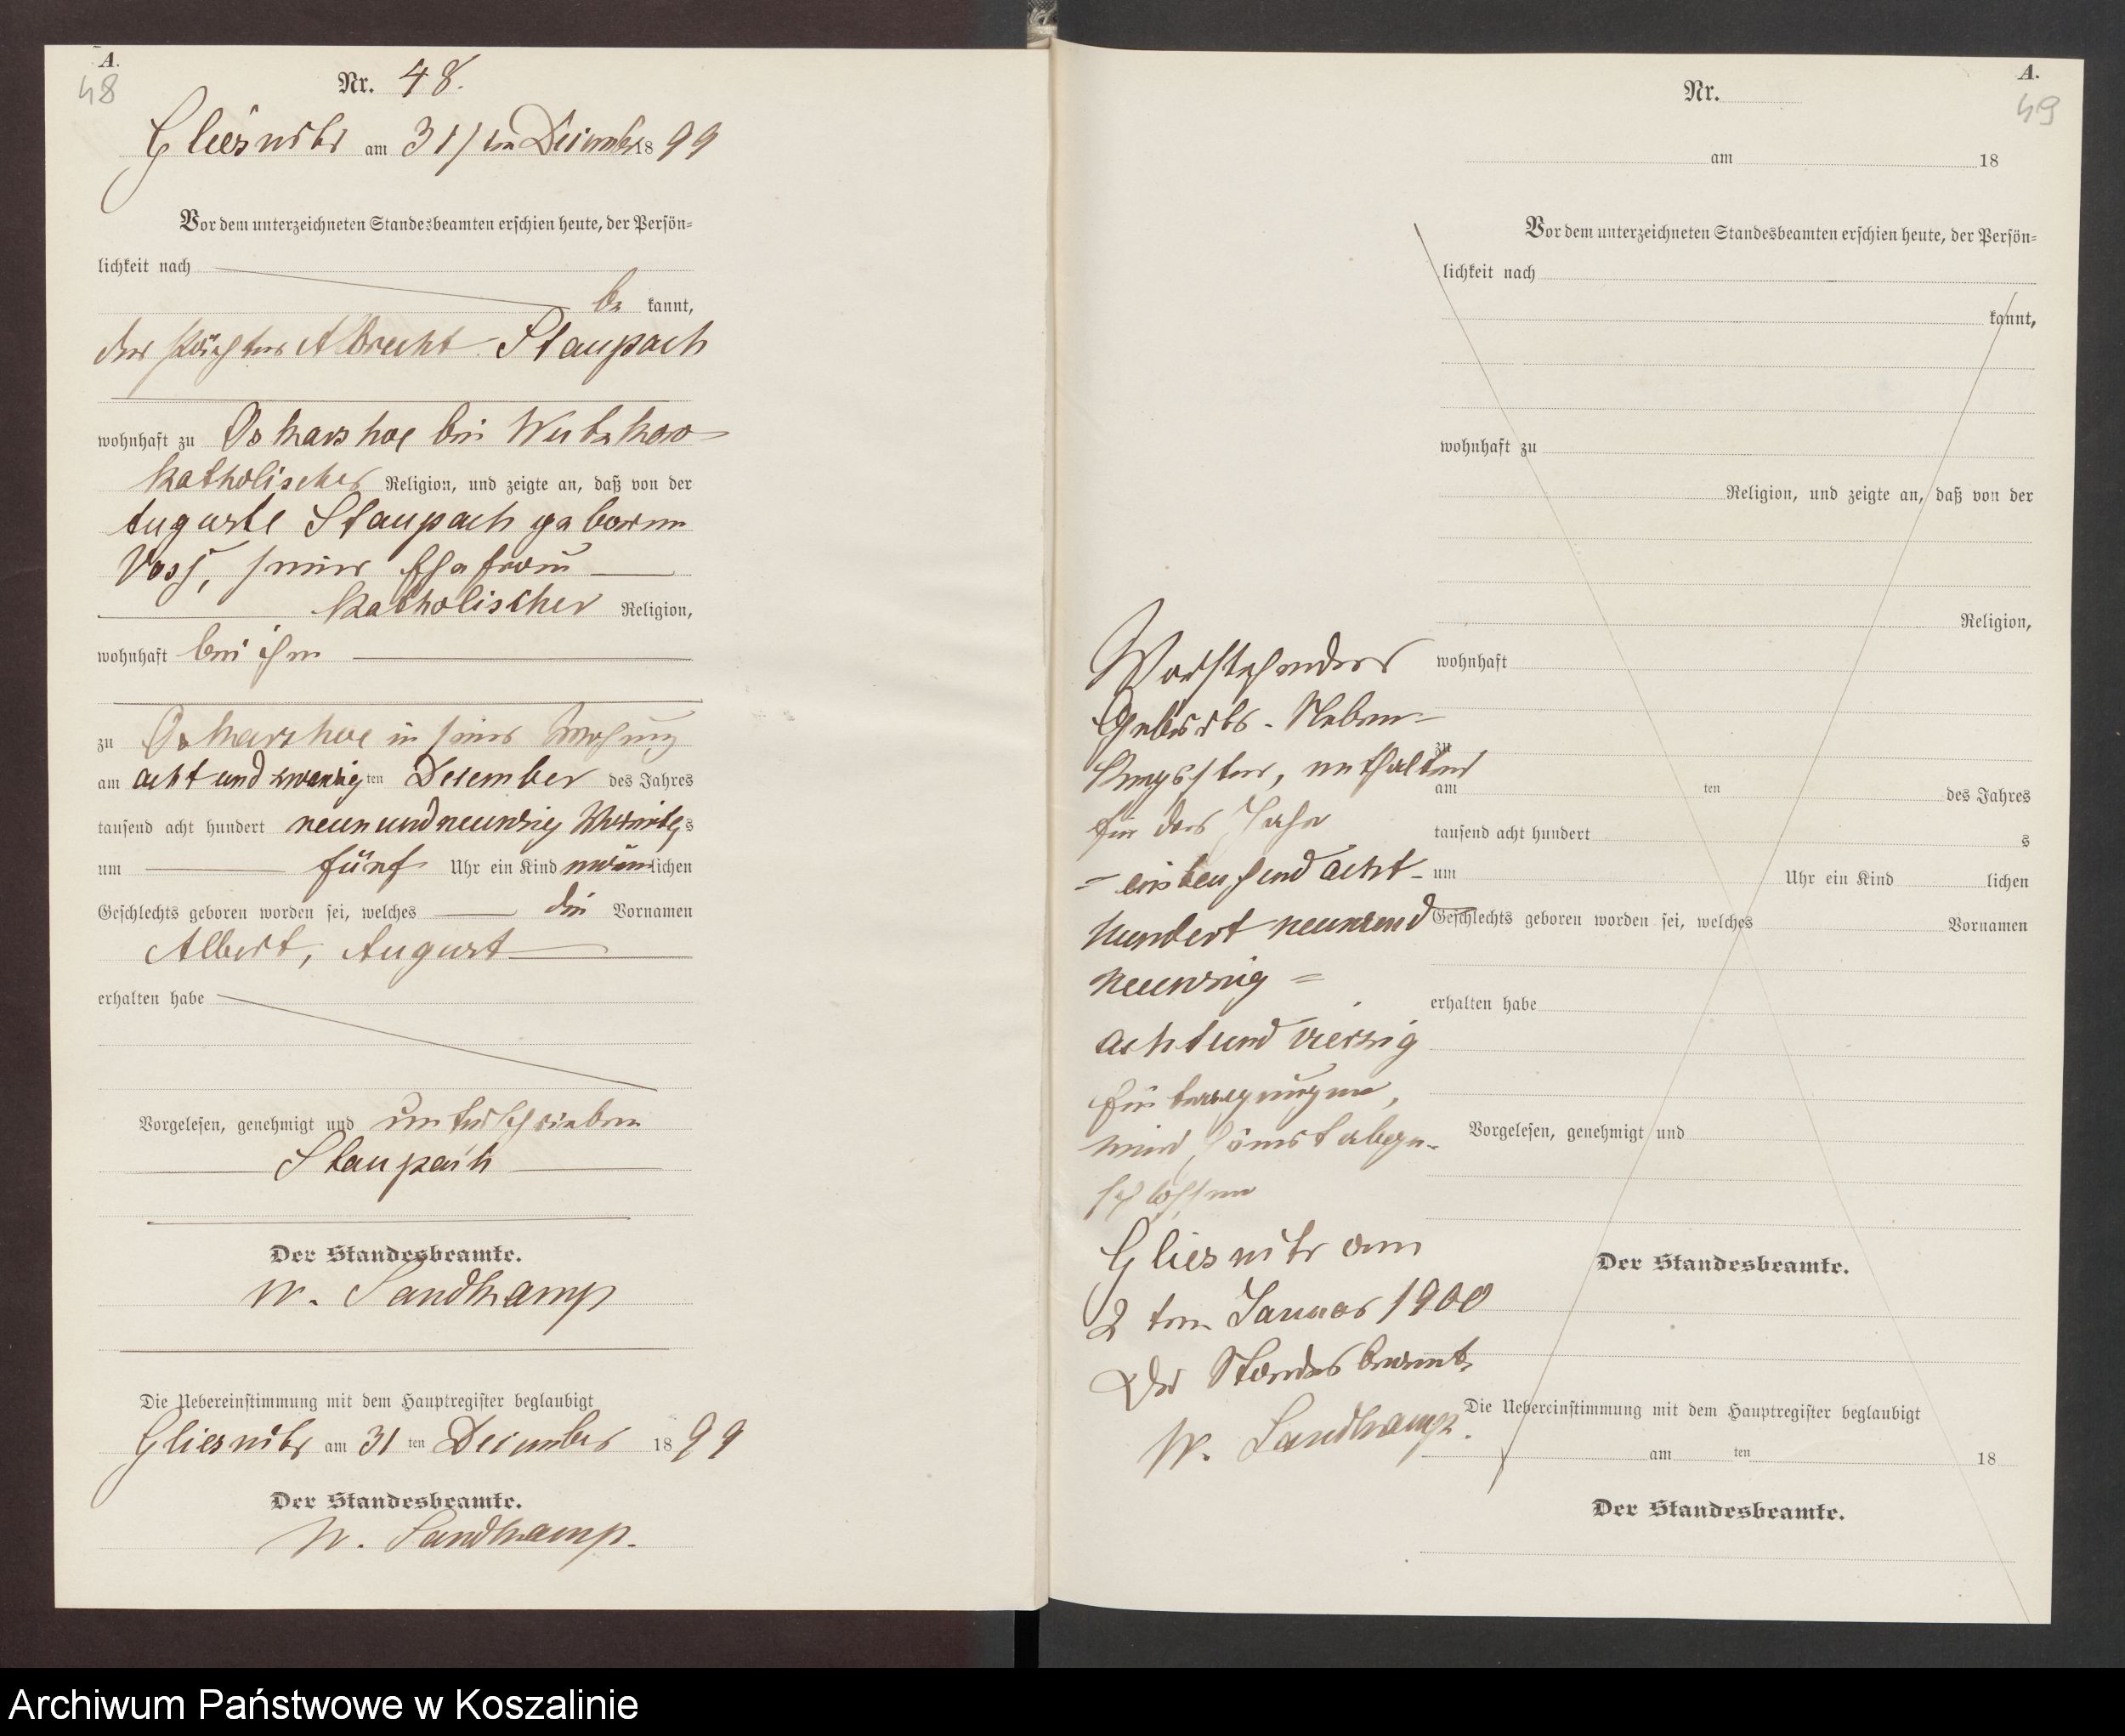 A.
48
Nr. 48.
Gliesnitz am 31 ten December 1899
Vor dem unterzeichneten Standesbeamten erschien heute, der Persön=
lichkeit nach
be kannt,
der Pächter Albrecht Staupach
wohnhaft zu Oskarshoe bei Wutzkow
katholischer Religion, und zeigte an, daß von der
Auguste Staupach geborene
Voss, seiner Ehefrau
katholischer Religion,
wohnhaft bei ihm
zu Oskarshoe in seiner Wohnung
am acht und zwanzig ten Dezember des Jahres
tausend acht hundert neun und neunzig Vormittags
um fünf Uhr ein Kind männlichen
Geschlechts geboren worden sei, welches die Vornamen
Albert, August
erhalten habe
Vorgelesen, genehmigt und unterschrieben
Staupach
Der Standesbeamte.
W. Sandkamp
Die Uebereinstimmung mit dem Hauptregister beglaubigt
Gliesnitz am 31 ten December 1899
Der Standesbeamte.
W. Sandkamp.
A.
49
Nr.
am 18
Vor dem unterzeichneten Standesbeamten erschien heute, der Persön=
lichkeit nach
kannt,
wohnhaft zu
Religion, und zeigte an, daß von der
Religion,
wohnhaft
zu
am ten des Jahres
tausend acht hundert s
um Uhr ein Kind lichen
Geschlechts geboren worden sei, welches Vornamen
erhalten habe
Vorgelesen, genehmigt und
Der Standesbeamte.
Die Uebereinstimmung mit dem Hauptregister beglaubigt
am ten 18
Der Standesbeamte.
Vorstehendes
Geburts-Neben-
Register, enthaltend
für das Jahr
= eintausend acht-
hundert neunund
neunzig =
acht und vierzig
Eintragungen,
wird hiermit abge-
schlossen
Gliesnitz am
2 ten Januar 1900
Der Standesbeamte
W. Sandkamp.
Archiwum Państwowe w Koszalinie